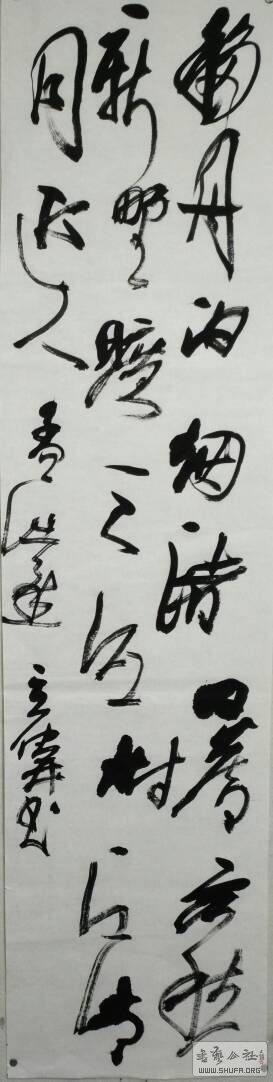 移舟泊烟渚日暮客愁
新野曠天低树江清
月近人 孟浩然 偉书
書藝公社
WWW.SHUFA.ORG